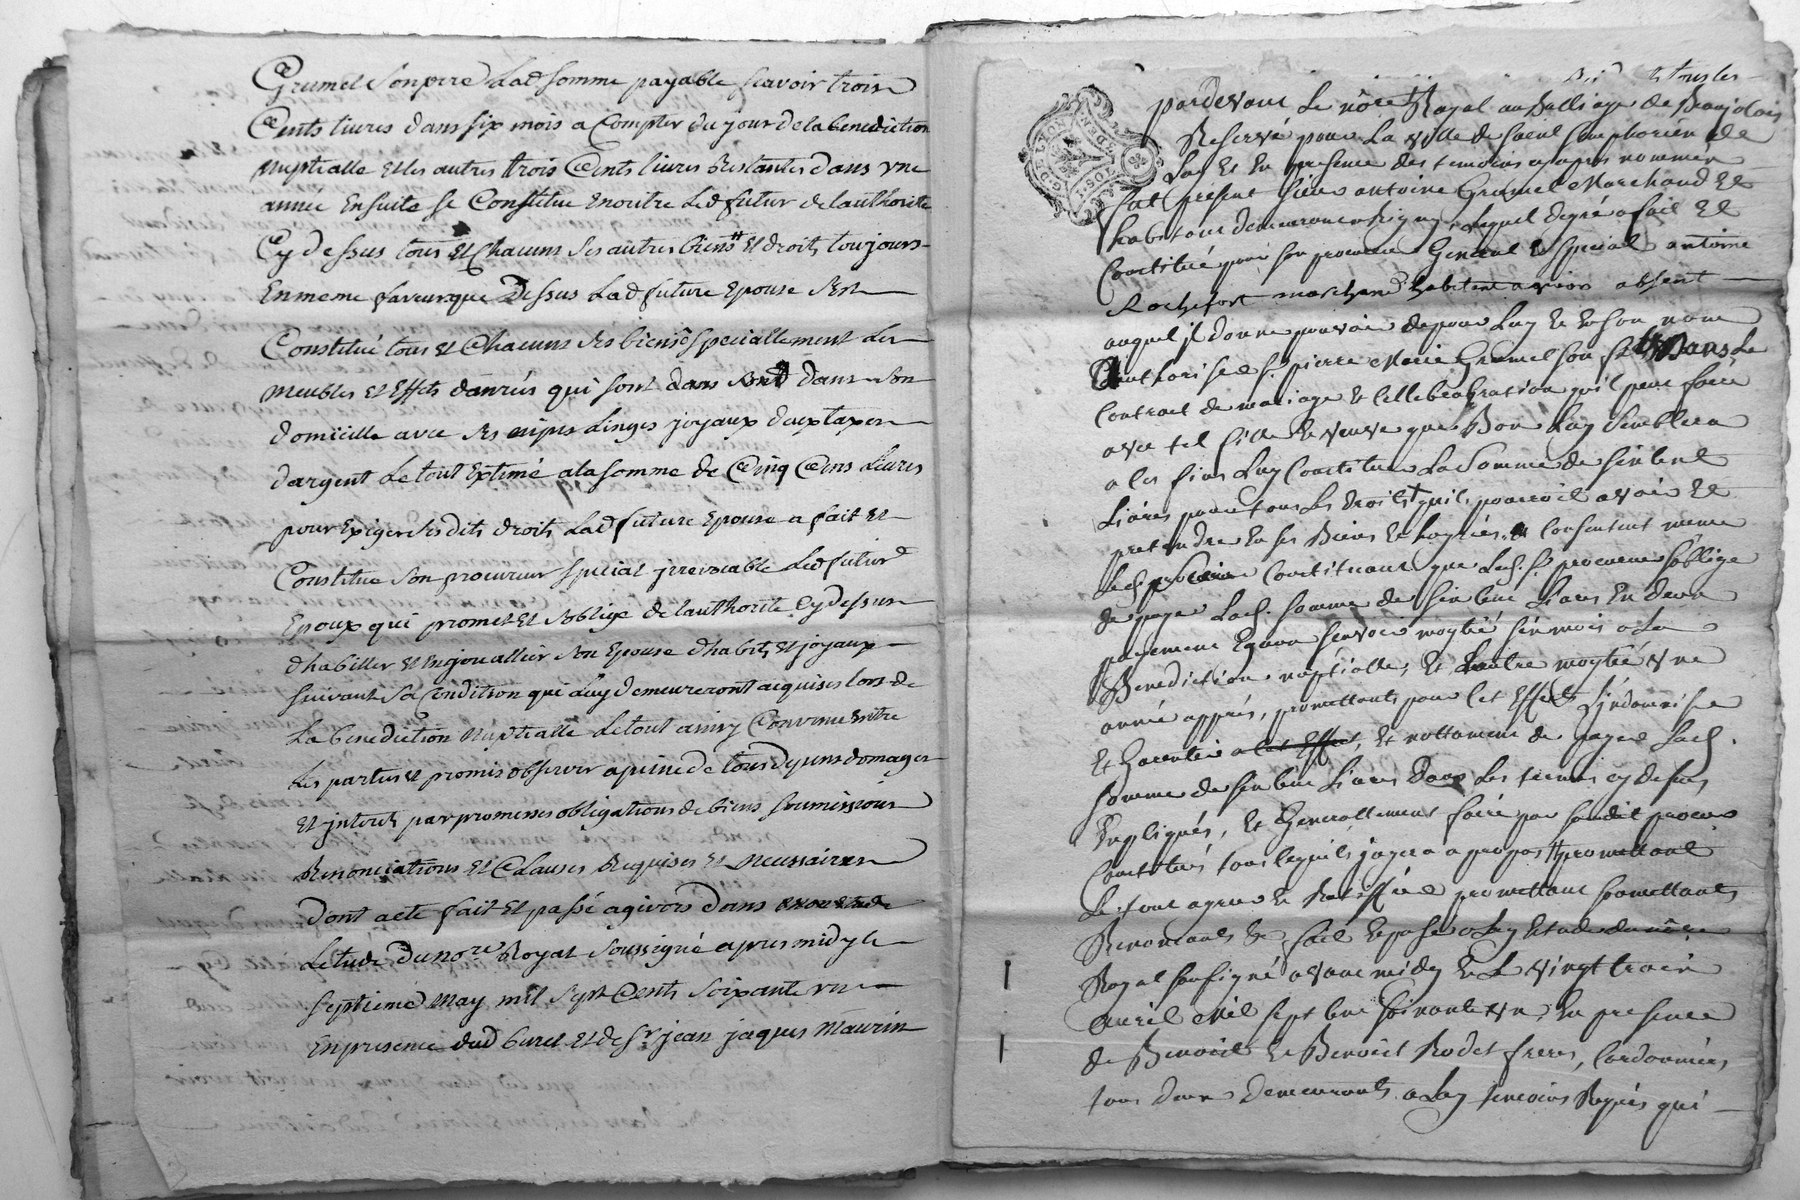 Grumel Son pere Lad somme payable scavoir trois
Cents livres dans six mois a Compter du jour de la benediction
Nuptialle et les autres trois Cents livres Restantes dans une
annee Ensuite se Constitue En outre Led futur de lauthorité
Cy dessus tous et Chacuns ses autres biens et droits toujours
En meme faveur que Dessus Lad future Epouse sest
Constitué tous et Chacuns ses biens speciallement les
meubles et Effets danrées qui sont dans dans son
domicille avec ses nipes Linges joyaux
dargent Le tout Extimé a la somme de Cinq Cens Livres
pour Exiger ses dits droits Lad future Epouse a fait et
Constitue son procureur special irrevocable Led futur
Epoux qui promet et soblige de lauthorité Cy dessus
dhabiller et enjoualler son Epouse dhabits et joyaux
suivant sa Condition qui Luy demeureront acquises lors de
La benediction Nuptialle Le tout ainsy Convenu Entre
Les parties et promis observer a peine de tous depens domages
et jnterets par promesses obligations de biens soumissions
Renonciations et Clauses Requises et Necessaires
Dont acte fait et passé a givors dans
Letude du nore Royal soussigné apres midy le
septieme May mil sept Cents soixante un
En presence dud Curet et de Sr jean jaques Maurin
pardevant Le nore Royal au Balliage de Beaujolois
Reservé pour La ville de saint simphorien de
Lay Et En presence des temoins cy apres nommés
fut present sieur antoine Grumel Marchand Et
habitant demeurant lequel de gré a fait Et
Constitué pour son procureur General Et special antoine
Rochefort marchand habitant a givors absent
auquel jl donne pouvoir de pour Luy Et En son nom
authorise s. pierre Marie Grumel son fils Dans Le
Contract de mariage Et Cellebration qu'il peut faire
avec tel fille Et veuve que Bon Luy semblera
a les fins Luy Constituer La somme de six Cent
Livres pour tous Les droits quil pourroit avoir Et
pretendre En ses Biens Et Consentant meme
Led. sieur Constituant que Led. s. procureur s'oblige
de payer Lad. somme de six Cent Livres En deux
payement Egaux scavoir moytié six mois a La
Benediction nuptialle, Et Lautre moytié une
année apprés, promettant pour Cet Effet L'indemnise
Et Garentir a Cet Effet, Et nottament de payer Lad.
somme de six Cent Livres Dans Les termes cy dessus
Expliqués, Et Generallement faire par sondit procur
Constitué tous ce quils jugera a propos promettant
Le tout agreer Et Ratiffier promettant soumettant
Renonceant Et, fait Et passé a Lay Etude du nore
Royal soussigné avant midy Et Le vingt trois
avril Mil sept Cent soixante un, En presence
de Benoit Et Benoit Rodet freres, Cordonniers
tous deux demeurants a Lay temoins Requis qui